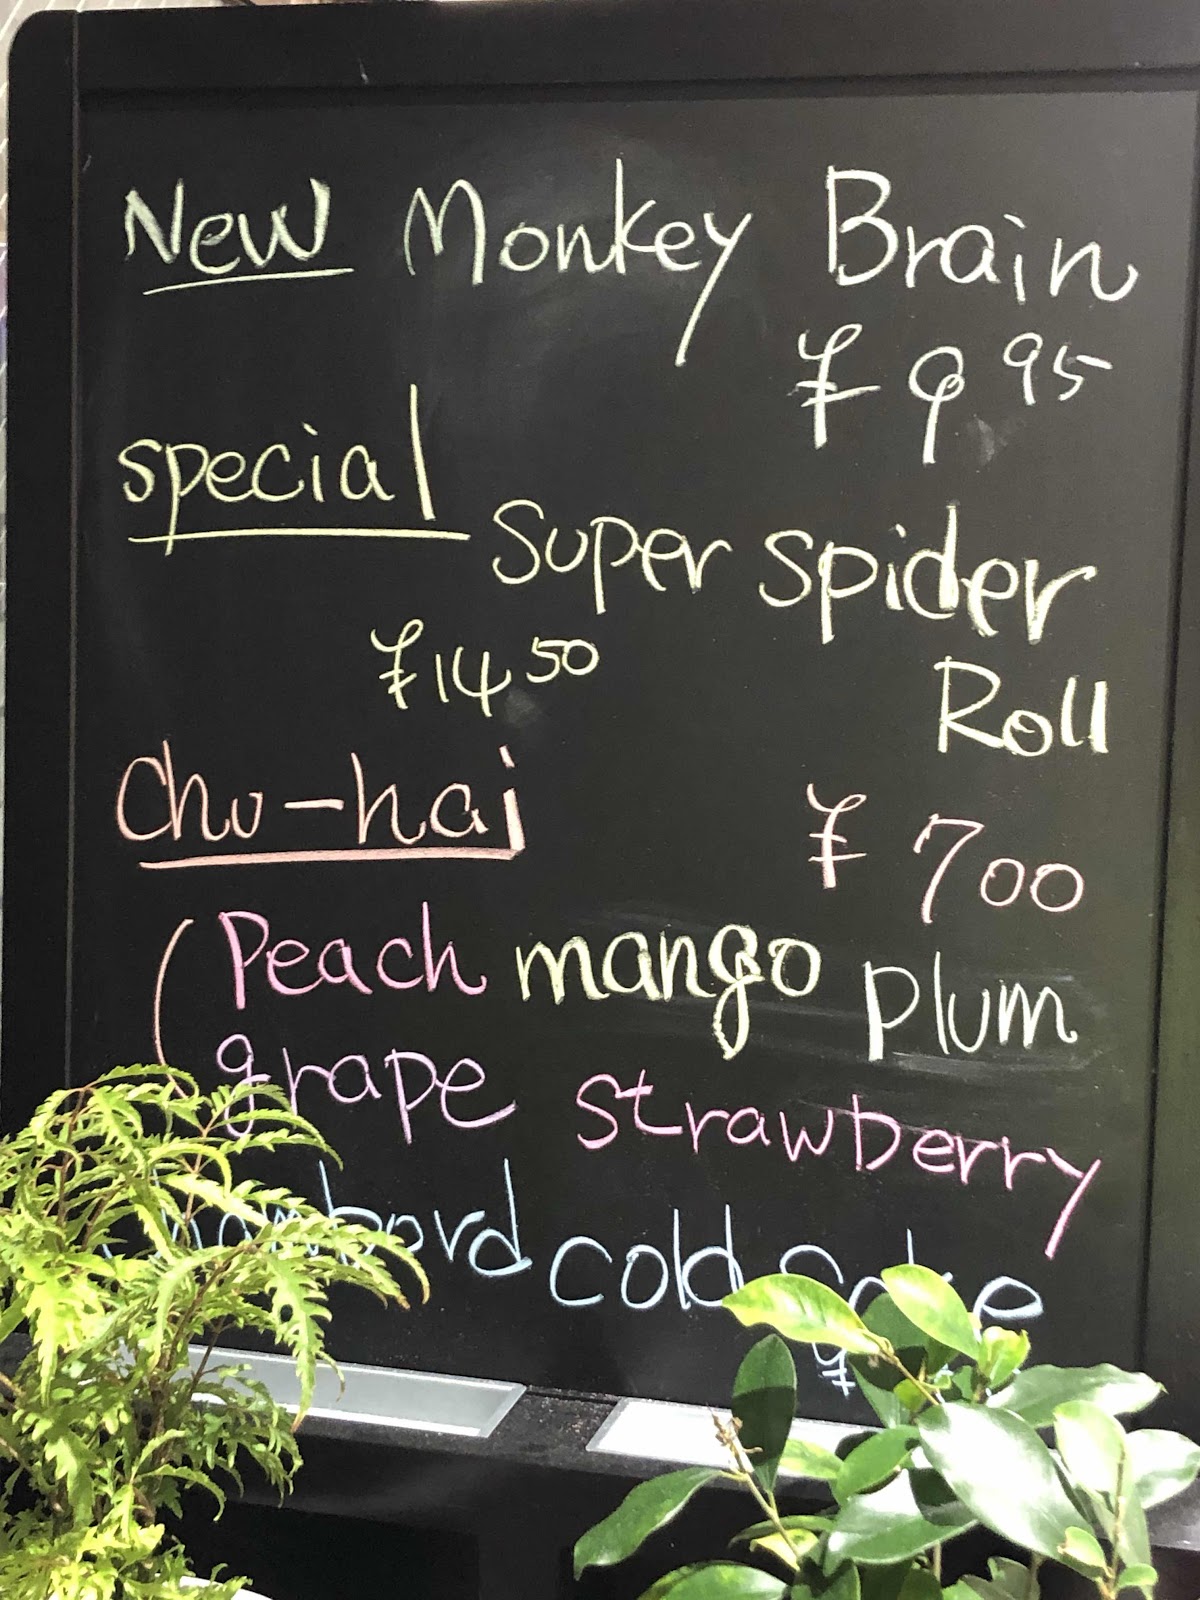 New Monkey Brain
¥9 95
special
Super Spider
¥14 50
Roll
Chu-hai
¥700
(Peach mango plum
grape strawberry
cold
¥